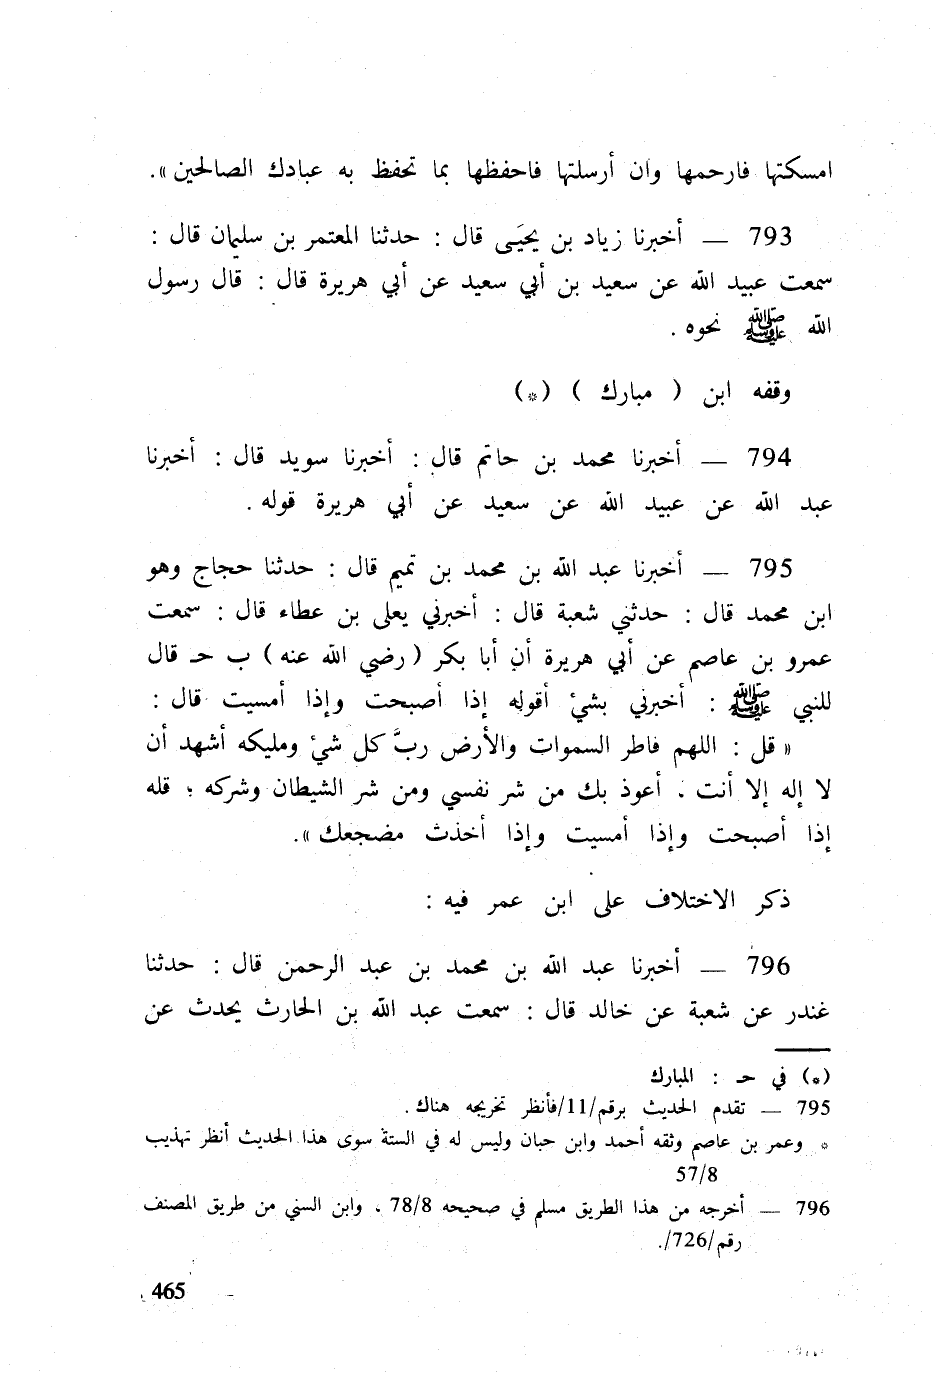 امسكتها فارحمها وان أرسلتها فاحفظها بما تحفظ به عبادك الصالحين ».
793 — أخبرنا زياد بن يحيَـى قال : حدثنا المعتمر بن سليمان قال :
سمعت عبيد الله عن سعيد بن أبي سعيد عن أبي هريرة قال : قال رسول
الله ﷺ نحوه .
وقفه ابن ( مبارك ) (*)
794 — أخبرنا محمد بن حاتم قال : أخبرنا سويد قال : أخبرنا
عبد الله عن عبيد الله عن سعيد عن أبي هريرة قوله .
795 — أخبرنا عبد الله بن محمد بن تميم قال : حدثنا حجاج وهو
ابن محمد قال : حدثني شعبة قال : أخبرني يعلى بن عطاء قال : سمعت
عمرو بن عاصم عن أبي هريرة أن أبا بكر ( رضي الله عنه ) ب حـ قال
للنبي ﷺ : أخبرني بشئ أقوله إذا أصبحت وإذا أمسيت قال :
« قل : اللهم فاطر السموات والأرض ربَّ كل شئ ومليكه أشهد أن
لا إله إلا أنت . أعوذ بك من شر نفسي ومن شر الشيطان وشركه ؛ قله
إذا أصبحت وإذا أمسيت وإذا أخذت مضجعك ».
ذكر الاختلاف على ابن عمر فيه :
796 — أخبرنا عبد الله بن محمد بن عبد الرحمن قال : حدثنا
غندر عن شعبة عن خالد قال : سمعت عبد الله بن الحارث يحدث عن
(*) في حـ : المبارك
795 — تقدم الحديث برقم/11/فأنظر تخريجه هناك .
* وعمر بن عاصم وثقه أحمد وابن حبان وليس له في الستة سوى هذا الحديث أنظر تهذيب
57/8
796 — أخرجه من هذا الطريق مسلم في صحيحه 78/8 ، وابن السني من طريق المصنف
رقم/726/.
465